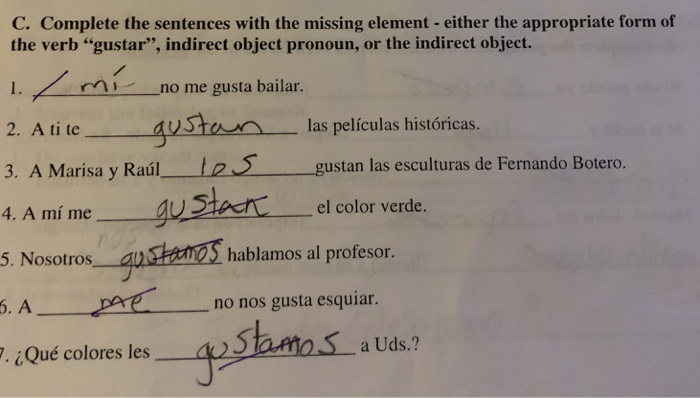 C. Complete the sentences with the missing element - either the appropriate form of
the verb “gustar”, indirect object pronoun, or the indirect object.
1. / mí no me gusta bailar.
2. A ti te gustan las películas históricas.
3. A Marisa y Raúl los gustan las esculturas de Fernando Botero.
4. A mí me gustan el color verde.
nos
5. Nosotros gustamos hablamos al profesor.
6. A me no nos gusta esquiar.
7. ¿Qué colores les gustamos a Uds.?